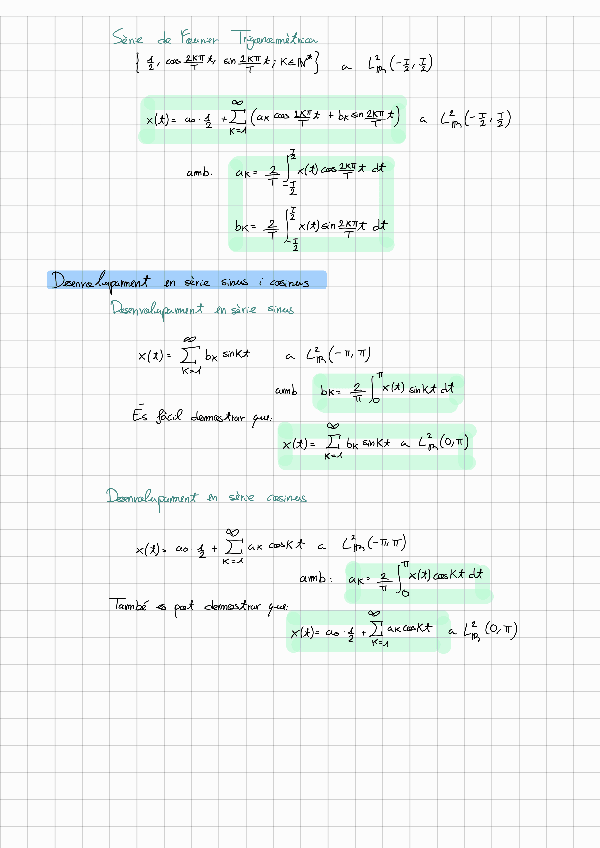 Sèrie de Fourier Trigonomètrica
{ 1/2, cos 2kπ/T t, sin 2kπ/T t ; k∈ℕ* } a L²_ℝ(-T/2, T/2)
x(t) = a₀ · 1/2 + ∑_{k=1}^{∞} (aₖ cos 2kπ/T t + bₖ sin 2kπ/T t) a L²_ℝ(-T/2, T/2)
amb. aₖ = 2/T ∫_{-T/2}^{T/2} x(t) cos 2kπ/T t dt
bₖ = 2/T ∫_{-T/2}^{T/2} x(t) sin 2kπ/T t dt
Desenvolupament en sèrie sinus i cosinus
Desenvolupament en sèrie sinus
x(t) = ∑_{k=1}^{∞} bₖ sin kt a L²_ℝ(-π, π)
amb bₖ = 2/π ∫_0^π x(t) sin kt dt
És fàcil demostrar que:
x(t) = ∑_{k=1}^{∞} bₖ sin kt a L²_ℝ(0, π)
Desenvolupament en sèrie cosinus
x(t) = a₀ 1/2 + ∑_{k=1}^{∞} aₖ cos kt a L²_ℝ(-π, π)
amb: aₖ = 2/π ∫_0^π x(t) cos kt dt
També es pot demostrar que:
x(t) = a₀ · 1/2 + ∑_{k=1}^{∞} aₖ cos kt a L²_ℝ(0, π)